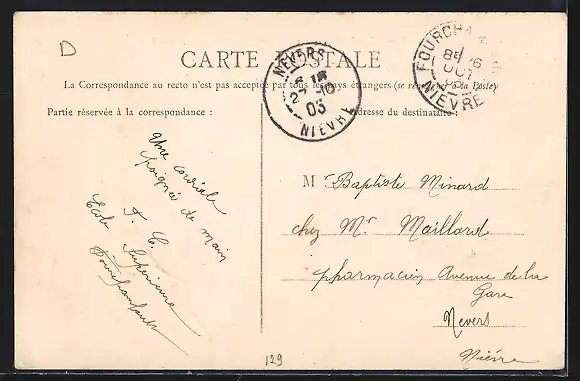 D
CARTE POSTALE
La Correspondance au recto n'est pas acceptée par tous les pays étrangers (se renseigner à la Poste)
Partie réservée à la correspondance :
Adresse du destinataire :
NEVERS
27 -10
05
NIÈVRE
FOURCHAM
OCT
NIÈVRE
Une cordiale
poignée de main
F. C.
École Supérieure
Fourchambault
Mr Baptiste Minard
chez Mr Maillard
pharmacien Avenue de la
Gare
Nevers
Nièvre
129